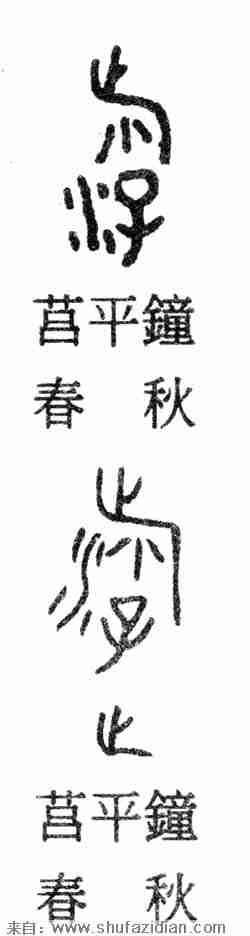 莒平鐘
春秋
莒平鐘
春秋
来自：www.shufazidian.com